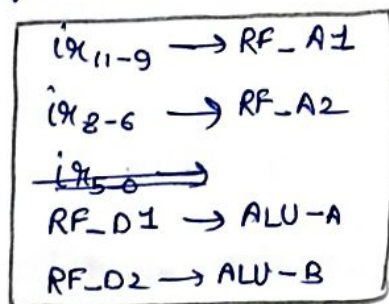 ir₁₁₋₉ → RF_A1
ir₈₋₆ → RF_A2
ir₅₋₀ →
RF_D1 → ALU-A
RF_D2 → ALU-B